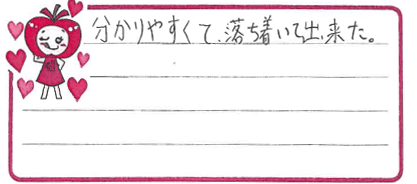 分かりやすくて、落ち着いて出来た。